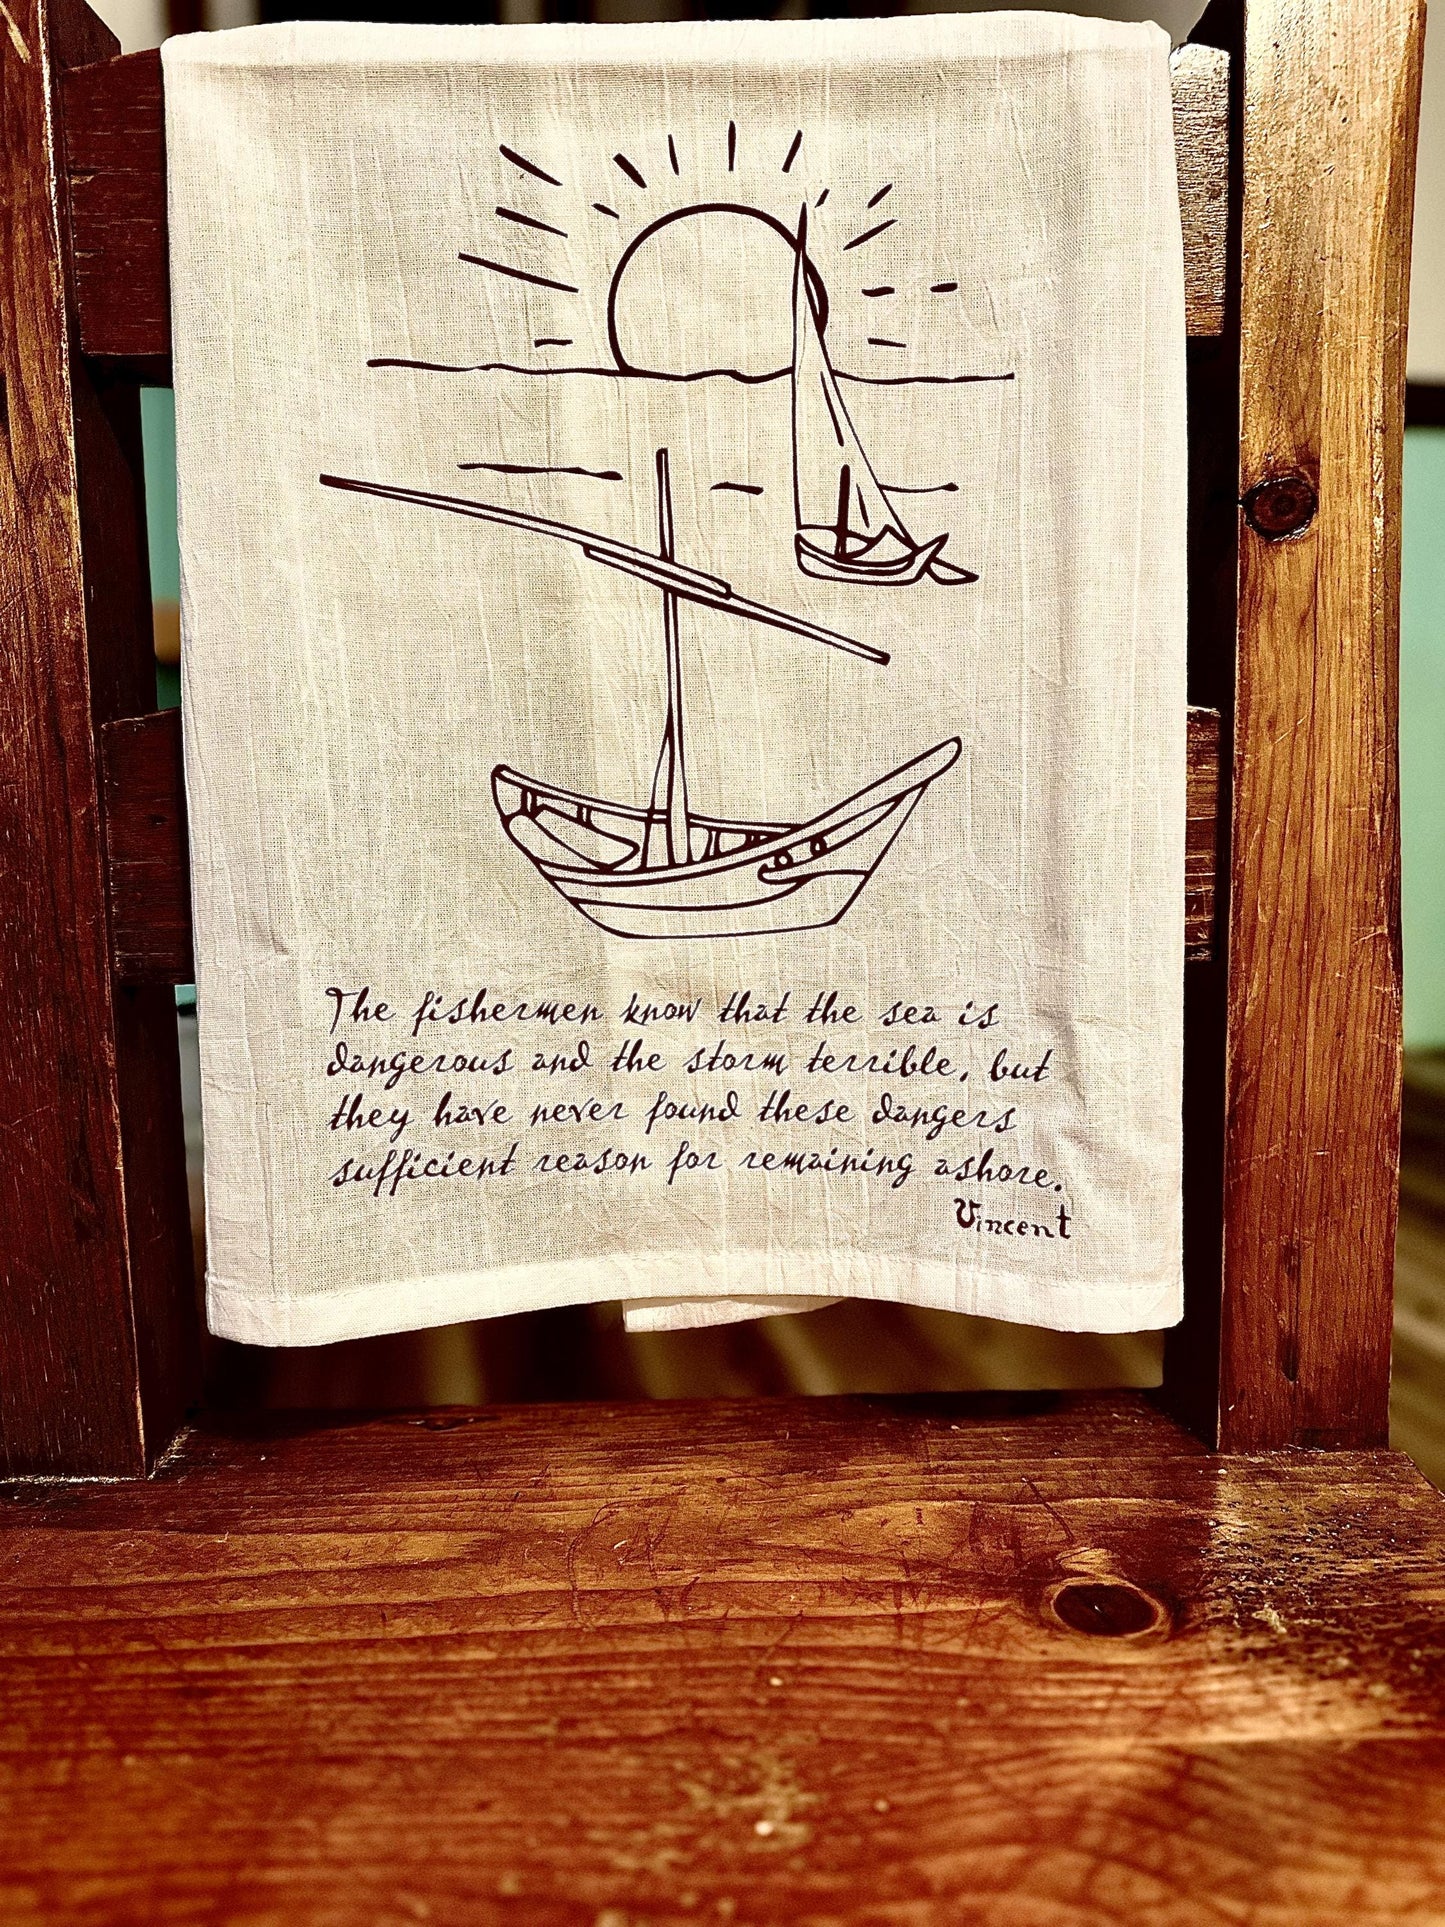 The fishermen know that the sea is
dangerous and the storm terrible, but
they have never found these dangers
sufficient reason for remaining ashore.
Vincent